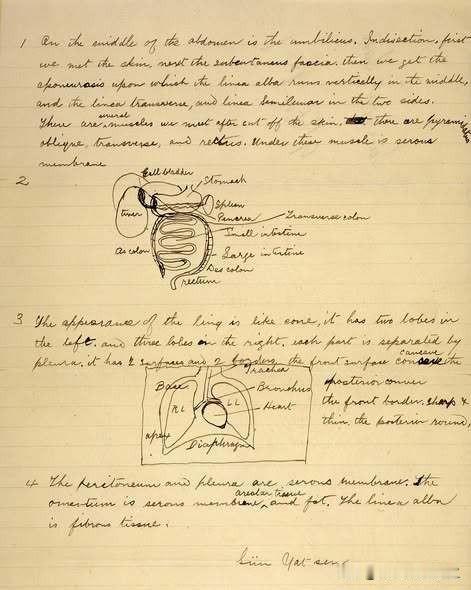 1 On the middle of the abdomen is the umbilicus. Indissection, first
we met the skin, next the subcutansus fascia then we get the
aponeurosis upon which the linea alba runs vertically in the middle,
and the linea transverse, and linea Semilunar in the two sides.
There are several muscles we meet after cut off the skin. thore are pyramidalis
obliqre, transverse, and rectus. Under these muscle is serous
membrane
2
Gall bladder
Stomach
liver
Spleen
Pancrea
Transverse colon
Small intestine
As colon
Large intestine
Des colon
rectum
3 The appearance of the lung is like cone, it has two lobes in
the left. and three lobes in the right. each part is separated by
pleura, it has 2 surfaces and 2 borders, the front surface concave the
posterior convex
the front border. sharp &
thin, the posterior round,
Trachea
Base
Bronchus
RL
LL
Heart
apex
Diaphragm
4 The Peritoneum and pleura are serous membrane. The
omentum is serous membrane, areolar tissue and fat. The linea alba
is fibrous tissue.
Sün Yat sen